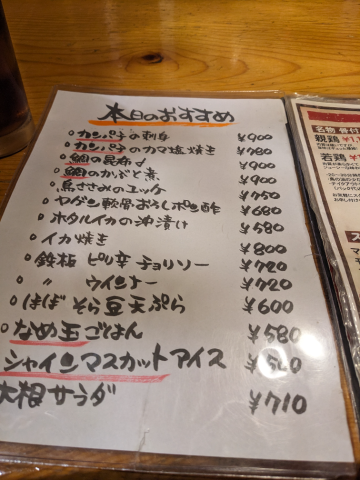 本日のおすすめ
○カンパチの刺身 ¥900
○カンパチのカマ塩焼き ¥780
○鯛の昆布〆 ¥900
○鯛のかぶと煮 ¥900
○鳥ささみのユッケ ¥750
○ヤゲン軟骨おろしポン酢 ¥680
○ホタルイカの沖漬け ¥580
○イカ焼き ¥800
○鉄板 ピリ辛 チョリソー ¥720
○〃 ウインナー ¥720
○はば そら豆天ぷら ¥600
○なめ玉ごはん ¥580
シャインマスカットアイス
大根サラダ ¥710
名物 骨付
親鶏
若鶏